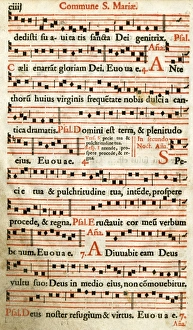 ciiij Commune S. Mariæ.
dedisti sua- uitatis sancta Dei genitrix.
Psal. Aña.
Cæli enarrāt gloriam Dei. Euouae. 4. Ante
thorū huius virginis frequētate nobis dulcia can-
tica dramatis. Psal. Domini est terra, & plenitudo
eius. Euouae. Spe-
cie tua & pulchritudine tua, intēde, prospere
procede, & regna. Psal. Eructauit cor meū verbum
Aña.
bonum. Euouae. 7. Adiuuabit eam Deus
vultu suo: Deus in medio eius, non cōmouebitur.
Psal. Deus noster refugium & virtus. Euouae.